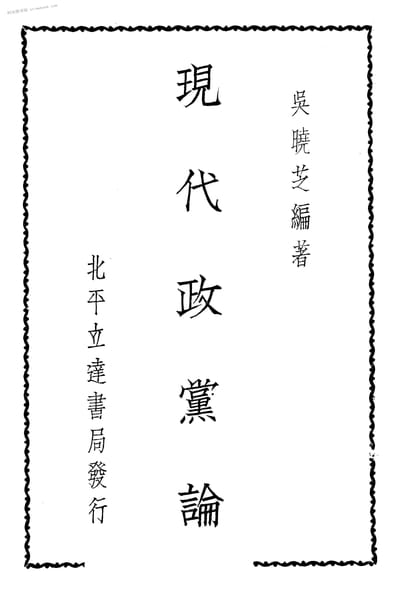 吳曉芝編著
現代政黨論
北平立達書局發行